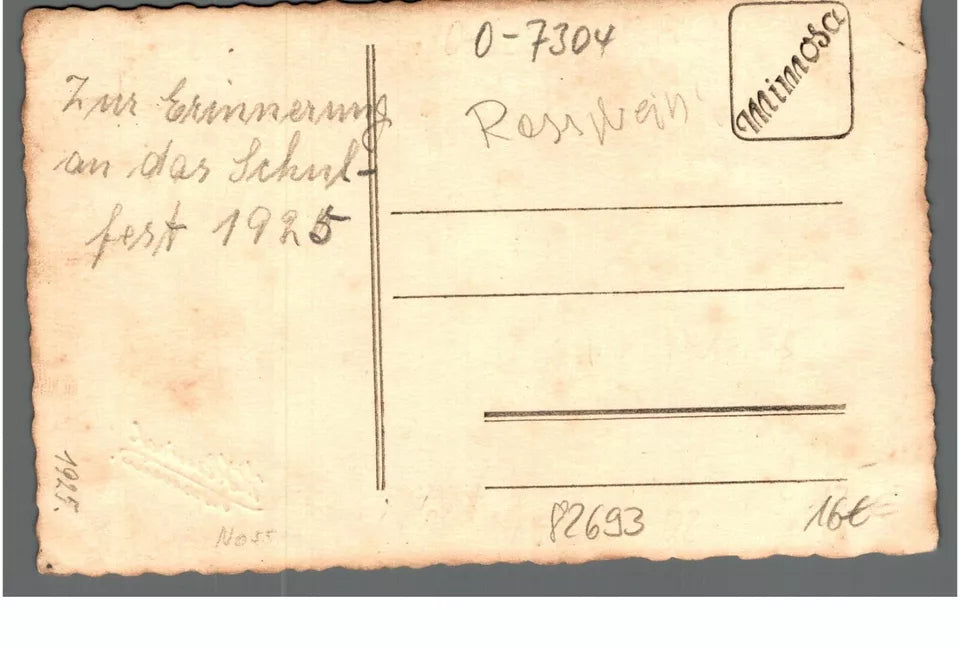 Zur Erinnerung
an das Schul-
fest 1925
1925.
O-7304
Rosswein
Mimosa
82693
16€